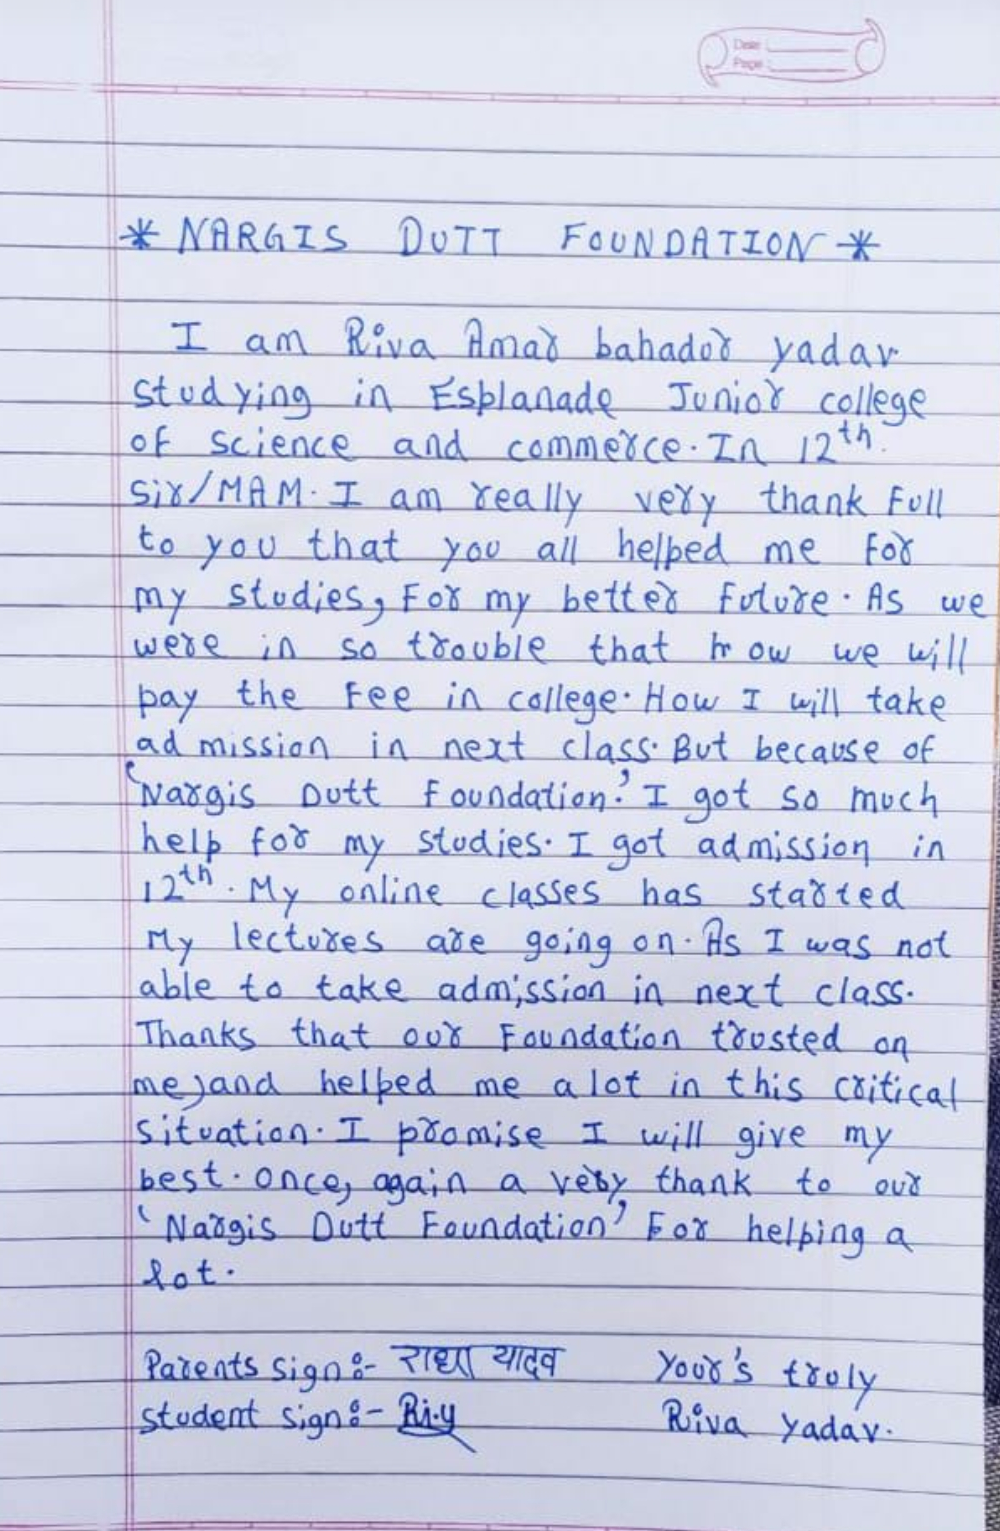 Date
Page
* NARGIS DUTT FOUNDATION *
I am Riva Amar bahador yadav
studying in Esplanade Junior college
of science and commerce. In 12th.
Sir/MAM. I am really very thank Full
to you that you all helped me For
my studies, For my better future. As we
were in so trouble that how we will
pay the Fee in college. How I will take
ad mission in next class. But because of
'Nargis Dutt Foundation.' I got so much
help for my studies. I got admission in
12th. My online classes has started
My lectures are going on. As I was not
able to take admission in next class.
Thanks that our Foundation trusted on
me, and helped me a lot in this critical
situation. I promise I will give my
best. once, again a very thank to our
'Nargis Dutt Foundation' For helping a
lot.
Parents sign:- राधा यादव Your's truly
student sign:- Ri.y Riva yadav.